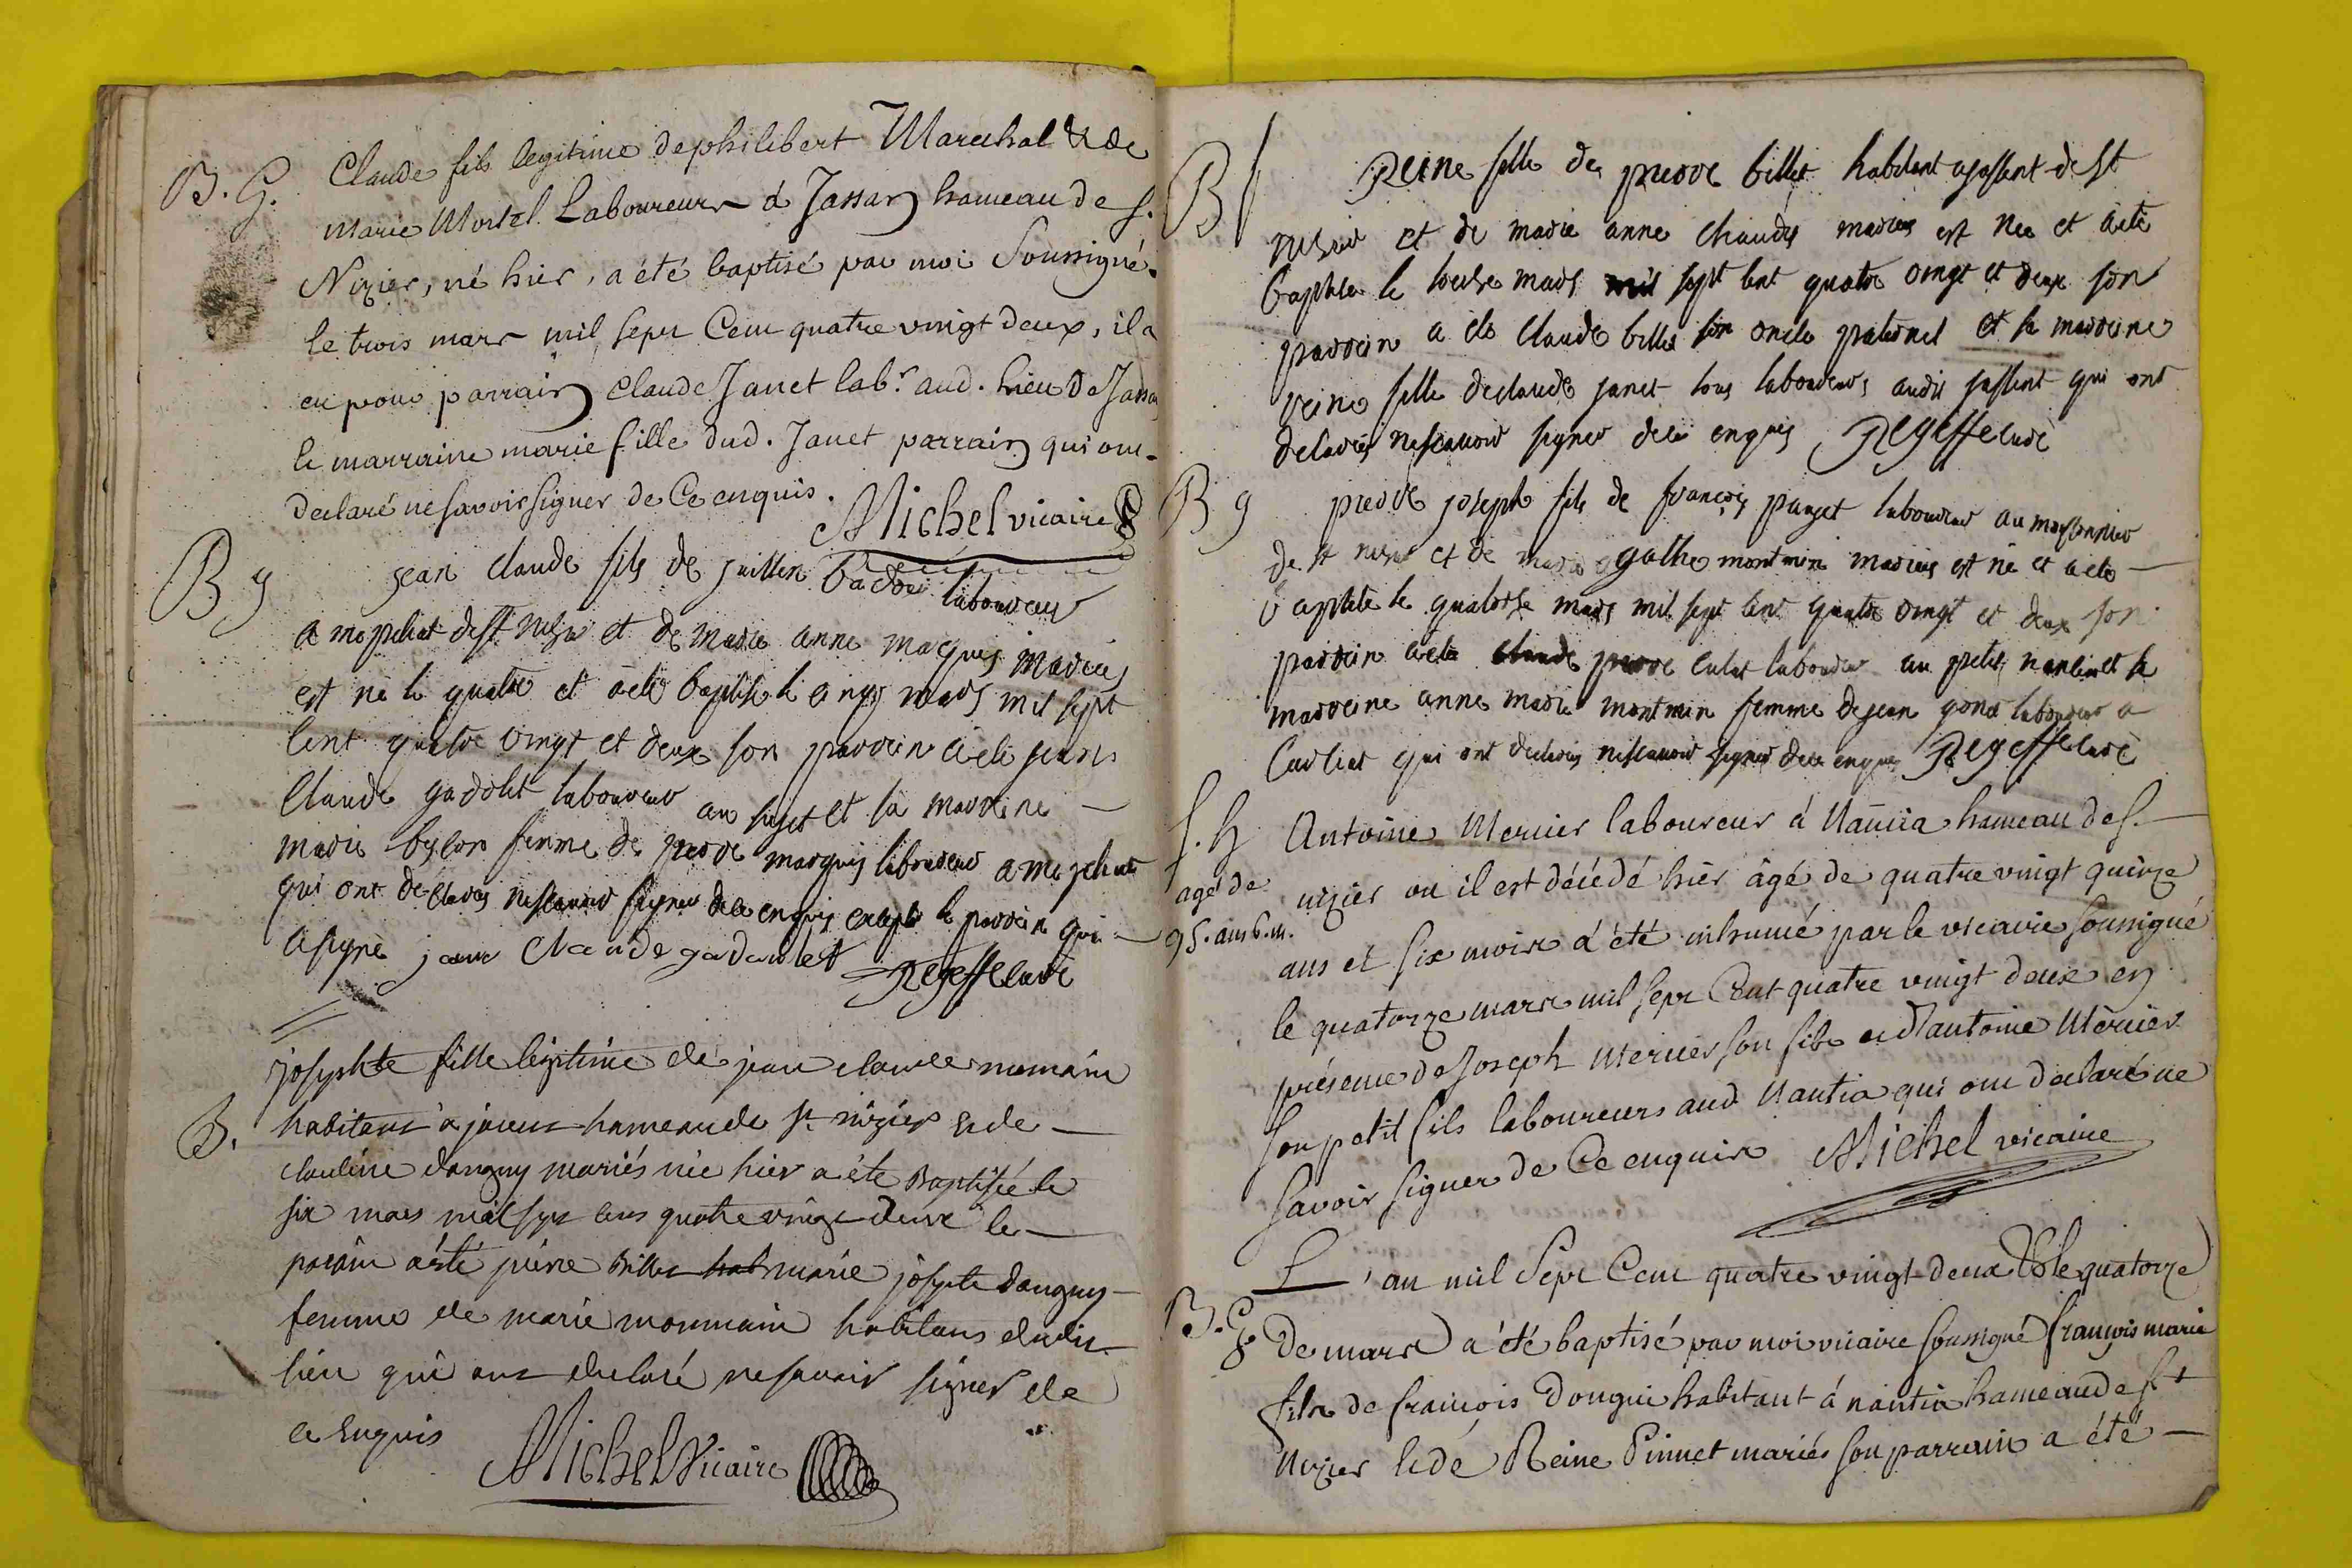 B. G. Claude fils legitime de philibert Marechal & de
Marie Mortel Laboureurs à Jassan hameau de s.
Nizier, né hier, a été baptisé par moi Soussigné.
le trois mars mil sept Cent quatre vingt deux, il a
eu pour parrain Claude Janet lab.r aud. lieu de Jassan
le marraine marie fille dud. Janet parrain qui ont
declaré ne savoir signer de Ce enquis.
Michel vicaire
B g jean claude fils de juillen badou laboureur
a st nisier et de marie anne marquis mariés
est né le quatre et a ete baptise le cinq mars mil sept
cent quatre vingt et deux son parrein a ete jean
Claude gadolet laboureur au et sa marreine
marie bylon femme de pierre marquis laboureur a
qui ont declares nescavoir signer de ce enquis excepte le parrein qui
a signé jean Claude gadaulet Regeffe curé
josephte fille légitime de jean claude monmain
B. habitans à jassans hameau de st nizier & de
claudine danguy mariés née hier a été Baptisée le
six mars mil sept cens quatre vingt deux le
parain a été pierre Billet marie josepte danguy
femme de marie monmain habitans dudit
lieu qui ont declaré ne savoir signer de
ce Enquis
Michel Vicaire
B f Reine fille de pierre billet habitant a jassent de st
nisier et de marie anne chaudy mariés est nee et a eté
baptisée le mars mil sept cent quatre vingt et deux son
parrein a ete claude billet son oncle paternel et sa marreine
reine fille de claude janet tous laboureurs audit jassent qui ont
declarés nescavoir signer de ce enquis Regeffe curé
B g pierre joseph fils de françois panget laboureur au
de st nisier et de marie agathe montmin mariés est né et a ete
baptisé le quatorse mars mil sept cent quatre vingt et deux son
parrein a ete pierre cular laboureur au petit nantia et sa
marreine anne marie montmin femme de jean gonet laboureur a
Curtiat qui ont declarés nescavoir signer de ce enquis Regeffe curé
s. h Antoine Mercier laboureur à Nantia hameau de s.
agé de nizier ou il est décédé hier âgé de quatre vingt quinze
95. ans 6. m. ans et six mois a été inhumé par le vicaire soussigné
le quatorze mars mil sept Cent quatre vingt deux en
présence de Joseph Mercier son fils et d'antoine Mercier
son petit fils laboureurs aud. Nantia qui ont declaré ne
savoir signer de Ce enquis Michel vicaire
L'an mil Sept Cent quatre vingt deux & le quatorze
B. G de mars a été baptisé par moi vicaire soussigné françois marie
fils de françois Dongui habitant à nantia hameau de st
Nizier & de Reine Pinnet mariés son parrain a été